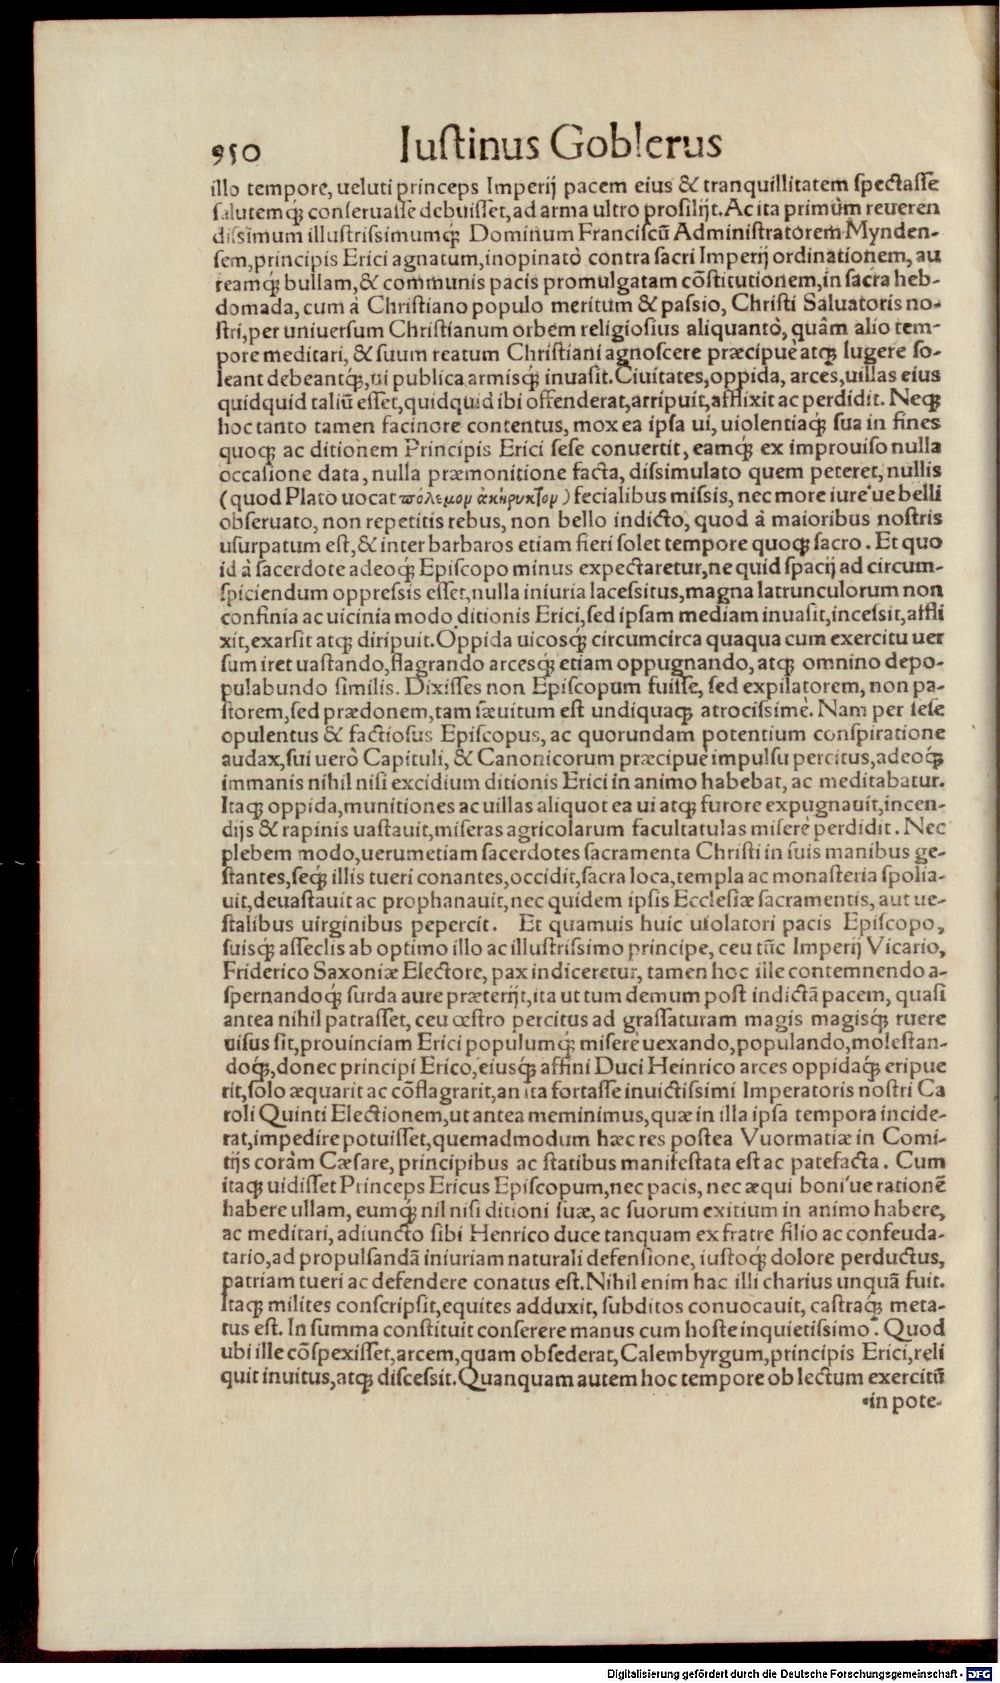 950 Iustinus Goblerus
illo tempore, ueluti princeps Imperij pacem eius & tranquillitatem spectasse
salutemq́ꝫ conseruasse debuisset, ad arma ultro prosilijt. Ac ita primùm reueren
dissimum illustrissimumq́ꝫ Dominum Franciscũ Administratorem Mynden-
sem, principis Erici agnatum, inopinatò contra sacri Imperij ordinationem, au
reamq́ꝫ bullam, & communis pacis promulgatam cõstitutionem, in sacra heb-
domada, cum à Christiano populo meritum & passio, Christi Saluatoris no-
stri, per uniuersum Christianum orbem religiosius aliquantò, quâm alio tem-
pore meditari, & suum reatum Christiani agnoscere præcipuè atqꝫ lugere so-
leant debeantq́ꝫ, ui publica armisq́ꝫ inuasit. Ciuitates, oppida, arces, uillas eius
quidquid taliũ esset, quidquid ibi offenderat, arripuit, afflixit ac perdidit. Neqꝫ
hoc tanto tamen facinore contentus, mox ea ipsa ui, uiolentiaq́ꝫ sua in fines
quoqꝫ ac ditionem Principis Erici sese conuertit, eamq́ꝫ ex improuiso nulla
occasione data, nulla præmonitione facta, dissimulato quem peteret, nullis
(quod Plato uocat πόλεμον ἀκήρυκτον) fecialibus missis, nec more iure'ue belli
obseruato, non repetitis rebus, non bello indicto, quod à maioribus nostris
usurpatum est, & inter barbaros etiam fieri solet tempore quoqꝫ sacro. Et quo
id à sacerdote adeoq́ꝫ Episcopo minus expectaretur, ne quid spacij ad circum-
spiciendum oppressis esset, nulla iniuria lacessitus, magna latrunculorum non
confinia ac uicinia modo ditionis Erici, sed ipsam mediam inuasit, incessit, affli
xit, exarsit atqꝫ diripuit. Oppida uicosq́ꝫ circumcirca quaqua cum exercitu uer
sum iret uastando, flagrando arcesq́ꝫ etiam oppugnando, atqꝫ omnino depo-
pulabundo similis. Dixisses non Episcopum fuisse, sed expilatorem, non pa-
storem, sed prædonem, tam sæuitum est undiquaqꝫ atrocissimè. Nam per sese
opulentus & factiosus Episcopus, ac quorundam potentium conspiratione
audax, sui uerò Capituli, & Canonicorum præcipuè impulsu percitus, adeoq́ꝫ
immanis nihil nisi excidium ditionis Erici in animo habebat, ac meditabatur.
Itaqꝫ oppida, munitiones ac uillas aliquot ea ui atqꝫ furore expugnauit, incen-
dijs & rapinis uastauit, miseras agricolarum facultatulas miserè perdidit. Nec
plebem modo, uerumetiam sacerdotes sacramenta Christi in suis manibus ge-
stantes, seq́ꝫ illis tueri conantes, occidit, sacra loca, templa ac monasteria spolia-
uit, deuastauit ac prophanauit, nec quidem ipsis Ecclesiæ sacramentis, aut ue-
stalibus uirginibus pepercit. Et quamuis huic uiolatori pacis Episcopo,
suisqꝫ asseclis ab optimo illo ac illustrissimo principe, ceu tũc Imperij Vicario,
Friderico Saxoniæ Electore, pax indiceretur, tamen hoc ille contemnendo a-
spernandoq́ꝫ surda aure præterijt, ita ut tum demum post indictã pacem, quasi
antea nihil patrasset, ceu œstro percitus ad grassaturam magis magisq́ꝫ ruere
uisus sit, prouinciam Erici populumq́ꝫ miserè uexando, populando, molestan-
doq́ꝫ, donec principi Erico, eiusq́ꝫ affini Duci Heinrico arces oppidaq́ꝫ eripue
rit, solo æquarit ac cõflagrarit, an ita fortasse inuictissimi Imperatoris nostri Ca
roli Quinti Electionem, ut antea meminimus, quæ in illa ipsa tempora incide-
rat, impedire potuisset, quemadmodum hæc res postea Vuormatiæ in Comi-
tijs coràm Cæsare, principibus ac statibus manifestata est ac patefacta. Cum
itaqꝫ uidisset Princeps Ericus Episcopum, nec pacis, nec æqui boni'ue rationẽ
habere ullam, eumq́ꝫ nil nisi ditioni suæ, ac suorum exitium in animo habere,
ac meditari, adiuncto sibi Henrico duce tanquam ex fratre filio ac confeuda-
tario, ad propulsandã iniuriam naturali defensione, iustoq́ꝫ dolore perductus,
patriam tueri ac defendere conatus est. Nihil enim hac illi charius unquã fuit.
Itaqꝫ milites conscripsit, equites adduxit, subditos conuocauit, castraq́ꝫ meta-
tus est. In summa constituit conserere manus cum hoste inquietissimo. Quod
ubi ille cõspexisset, arcem, quam obsederat, Calembyrgum, principis Erici, reli
quit inuitus, atqꝫ discessit. Quanquam autem hoc tempore ob lectum exercitũ
in pote-
Digitalisierung gefördert durch die Deutsche Forschungsgemeinschaft - DFG